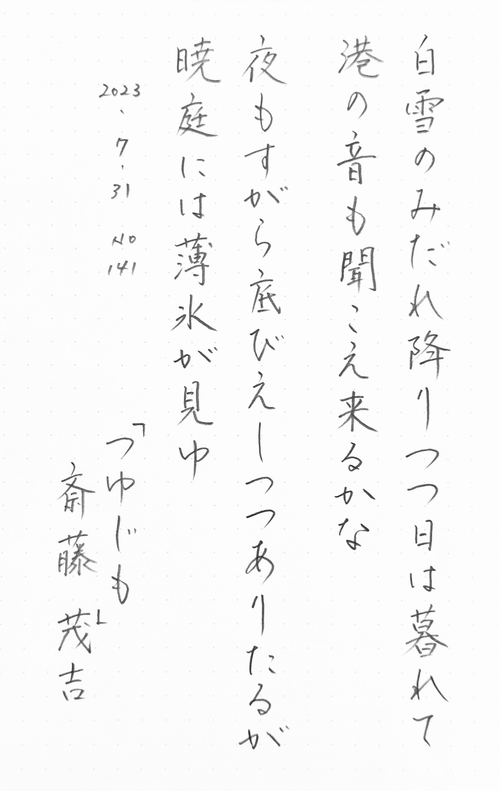 白雪のみだれ降りつつ日は暮れて
港の音も聞こえ来るかな
夜もすがら底びえしつつありたるが
暁庭には薄氷が見ゆ
「つゆじも」
斎藤茂吉
2023.7.31 No 141